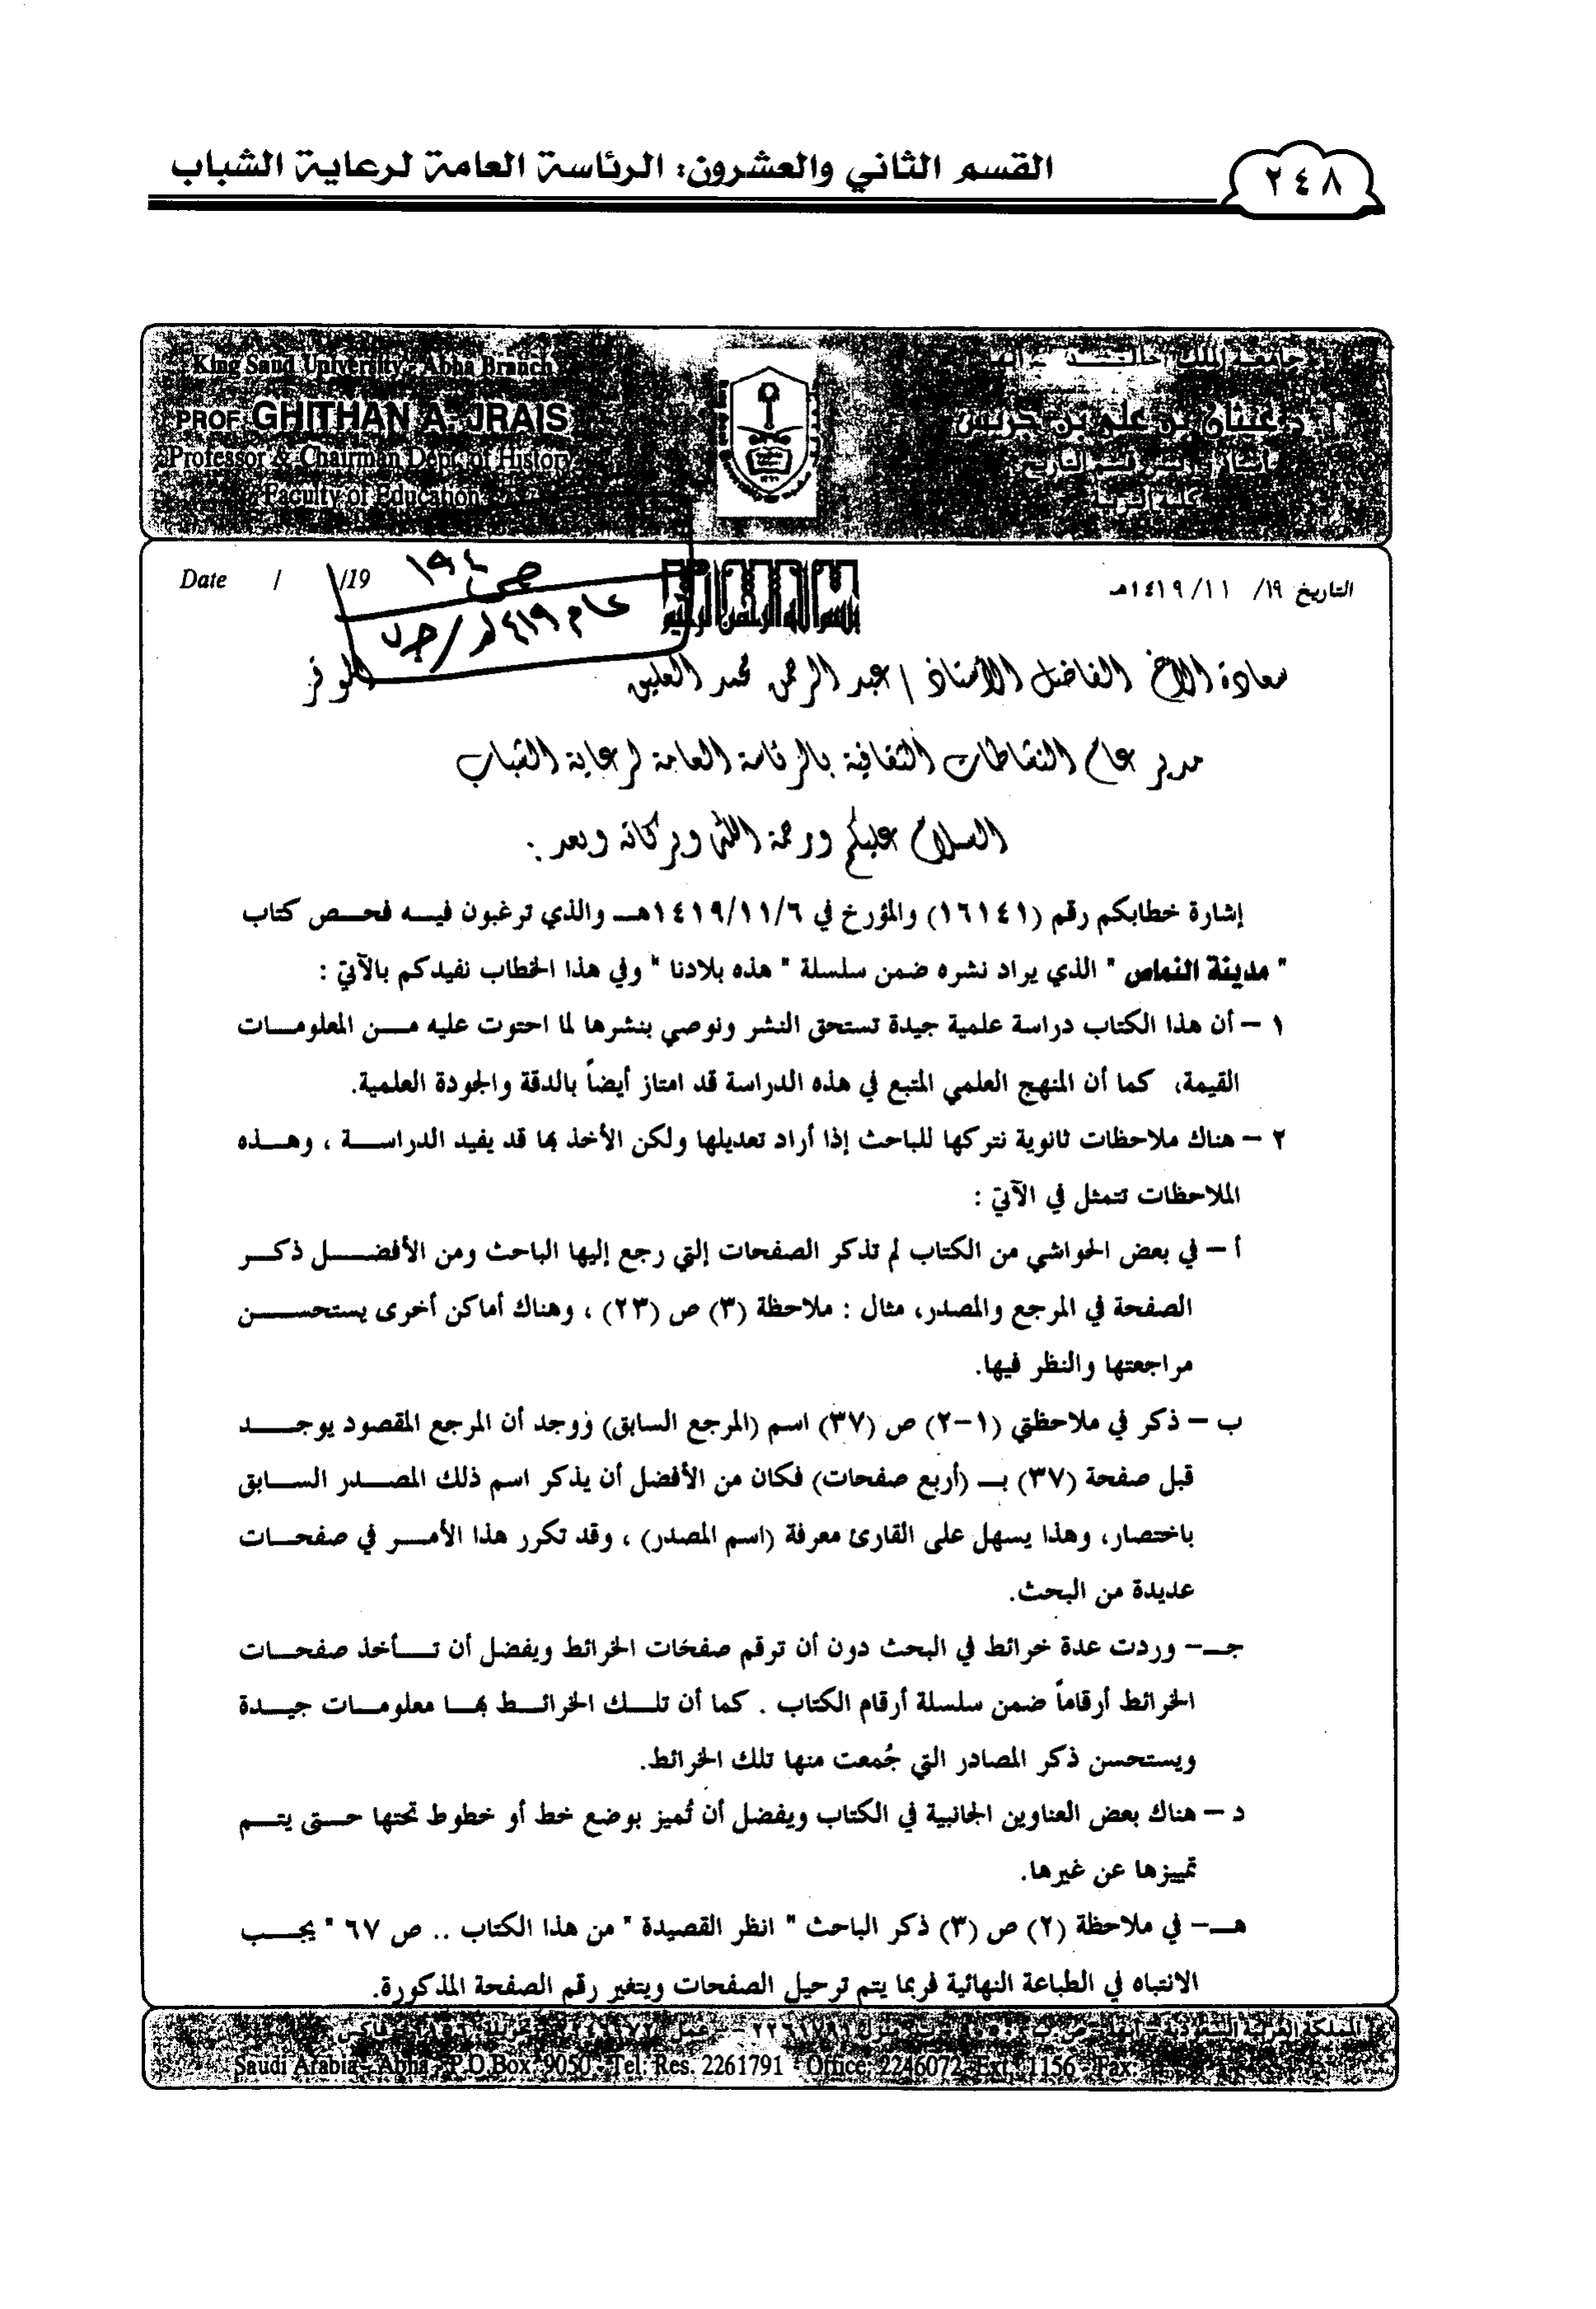 ٢٤٨
القسم الثاني والعشرون: الرئاسة العامة لرعاية الشباب
King Saud University - Abha Branch
PROF GHITHAN A. JRAIS
Professor & Chairman Dept. of History
Faculty of Education
أ. د. غيثان بن علي بن جريس
كلية التربية
التاريخ ١٩/ ١١/ ١٤١٩هـ
بسم الله الرحمن الرحيم
Date / /19
ص ١٩٤
عام ١٤١٩هـ/جـ٧
سعادة الأخ الفاضل الأستاذ / عبد الرحمن محمد العليق الموقر
مدير عام النشاطات الثقافية بالرئاسة العامة لرعاية الشباب
السلام عليكم ورحمة الله وبركاته وبعد :
إشارة خطابكم رقم (١٦١٤١) والمؤرخ في ١٤١٩/١١/٦هـــ والذي ترغبون فيــه فحــص كتاب
" مدينة النماص " الذي يراد نشره ضمن سلسلة " هذه بلادنا " وفي هذا الخطاب نفيدكم بالآتي :
١ – أن هذا الكتاب دراسة علمية جيدة تستحق النشر ونوصي بنشرها لما احتوت عليه مــن المعلومــات
القيمة، كما أن المنهج العلمي المتبع في هذه الدراسة قد امتاز أيضاً بالدقة والجودة العلمية.
٢ – هناك ملاحظات ثانوية نتركها للباحث إذا أراد تعديلها ولكن الأخذ بها قد يفيد الدراســة ، وهــذه
الملاحظات تتمثل في الآتي :
أ – في بعض الحواشي من الكتاب لم تذكر الصفحات إلتي رجع إليها الباحث ومن الأفضــل ذكــر
الصفحة في المرجع والمصدر، مثال : ملاحظة (٣) ص (٢٣) ، وهناك أماكن أخرى يستحســن
مراجعتها والنظر فيها.
ب – ذكر في ملاحظتي (١-٢) ص (٣٧) اسم (المرجع السابق) ووجد أن المرجع المقصود يوجــد
قبل صفحة (٣٧) بــ (أربع صفحات) فكان من الأفضل أن يذكر اسم ذلك المصــدر الســابق
باختصار، وهذا يسهل على القارئ معرفة (اسم المصدر) ، وقد تكرر هذا الأمــر في صفحــات
عديدة من البحث.
جــ– وردت عدة خرائط في البحث دون أن ترقم صفحات الخرائط ويفضل أن تــأخذ صفحــات
الخرائط أرقاماً ضمن سلسلة أرقام الكتاب . كما أن تلــك الخرائــط بهــا معلومــات جيــدة
ويستحسن ذكر المصادر التي جُمعت منها تلك الخرائط.
د – هناك بعض العناوين الجانبية في الكتاب ويفضل أن تُميز بوضع خط أو خطوط تحتها حــتى يتــم
تمييزها عن غيرها.
هــ– في ملاحظة (٢) ص (٣) ذكر الباحث " انظر القصيدة " من هذا الكتاب .. ص ٦٧ " يجــب
الانتباه في الطباعة النهائية فربما يتم ترحيل الصفحات ويتغير رقم الصفحة المذكورة.
المملكة العربية السعودية – أبها
Saudi Arabia - Abha - P.O.Box. 9050 - Tel. Res. 2261791 - Office: 2246072 - Ext. 1156 - Fax.